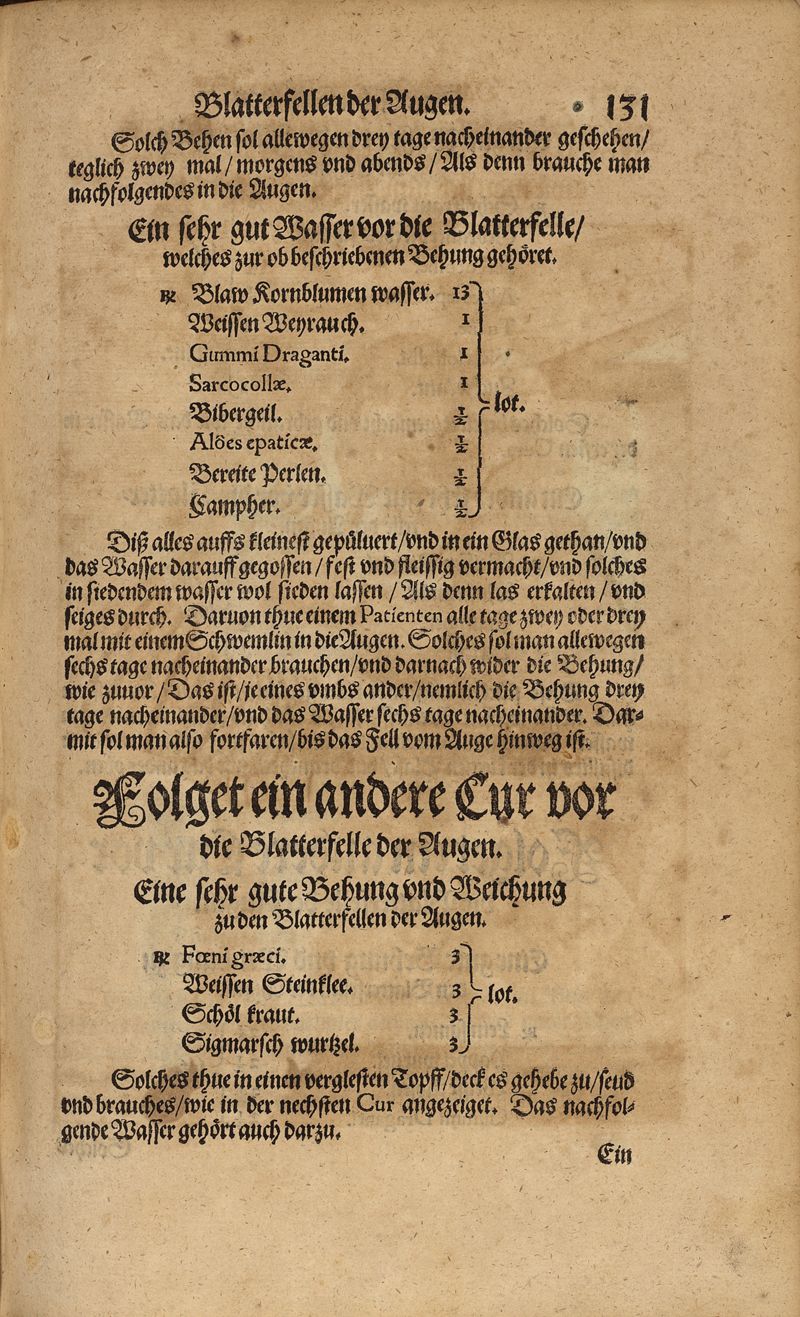 Blatterfellen der Augen. 131
Solch Behen sol allewegen drey tage nacheinander geschehen/
teglich zwey mal/ morgens vnd abends/ Als denn brauche man
nachfolgendes in die Augen.
Ein sehr gut Wasser vor die Blatterfelle/
welches zur obbeschriebenen Behung gehöret.
℞ Blaw Kornblumen wasser. 13
Weissen Weyrauch. 1
Gummi Draganti. 1
Sarcocollæ. 1
lot.
Bibergeil. ½
Alöes epaticæ. ½
Bereite Perlen. ½
Campher. ½
Diß alles auffs kleinest gepülvert/ vnd in ein Glas gethan/ vnd
das Wasser darauff gegossen/ fest vnd fleissig vermacht/ vnd solches
in siedendem wasser wol sieden lassen/ Als denn las erkalten/ vnd
seiges durch. Daruon thue einem Patienten alle tage zwey oder drey
mal mit einem Schwemlin in die Augen. Solches sol man allewegen
sechs tage nacheinander brauchen/ vnd darnach wider die Behung/
wie zuuor/ Das ist/ je eines vmbs ander/ nemlich die Behung drey
tage nacheinander/ vnd das Wasser sechs tage nacheinander. Dar⸗
mit sol man also fortfaren/ bis das Fell vom Auge hinweg ist.
Folget ein andere Cur vor
die Blatterfelle der Augen.
Eine sehr gute Behung vnd Weichung
zu den Blatterfellen der Augen.
℞ Fœni græci. 3
Weissen Steinklee. 3
lot.
Schöl kraut. 3
Sigmarsch wurtzel. 3
Solches thue in einen verglesten Topff/ deck es gehebe zu/ seud
vnd brauches/ wie in der nechsten Cur angezeiget. Das nachfol⸗
gende Wasser gehört auch darzu.
Ein